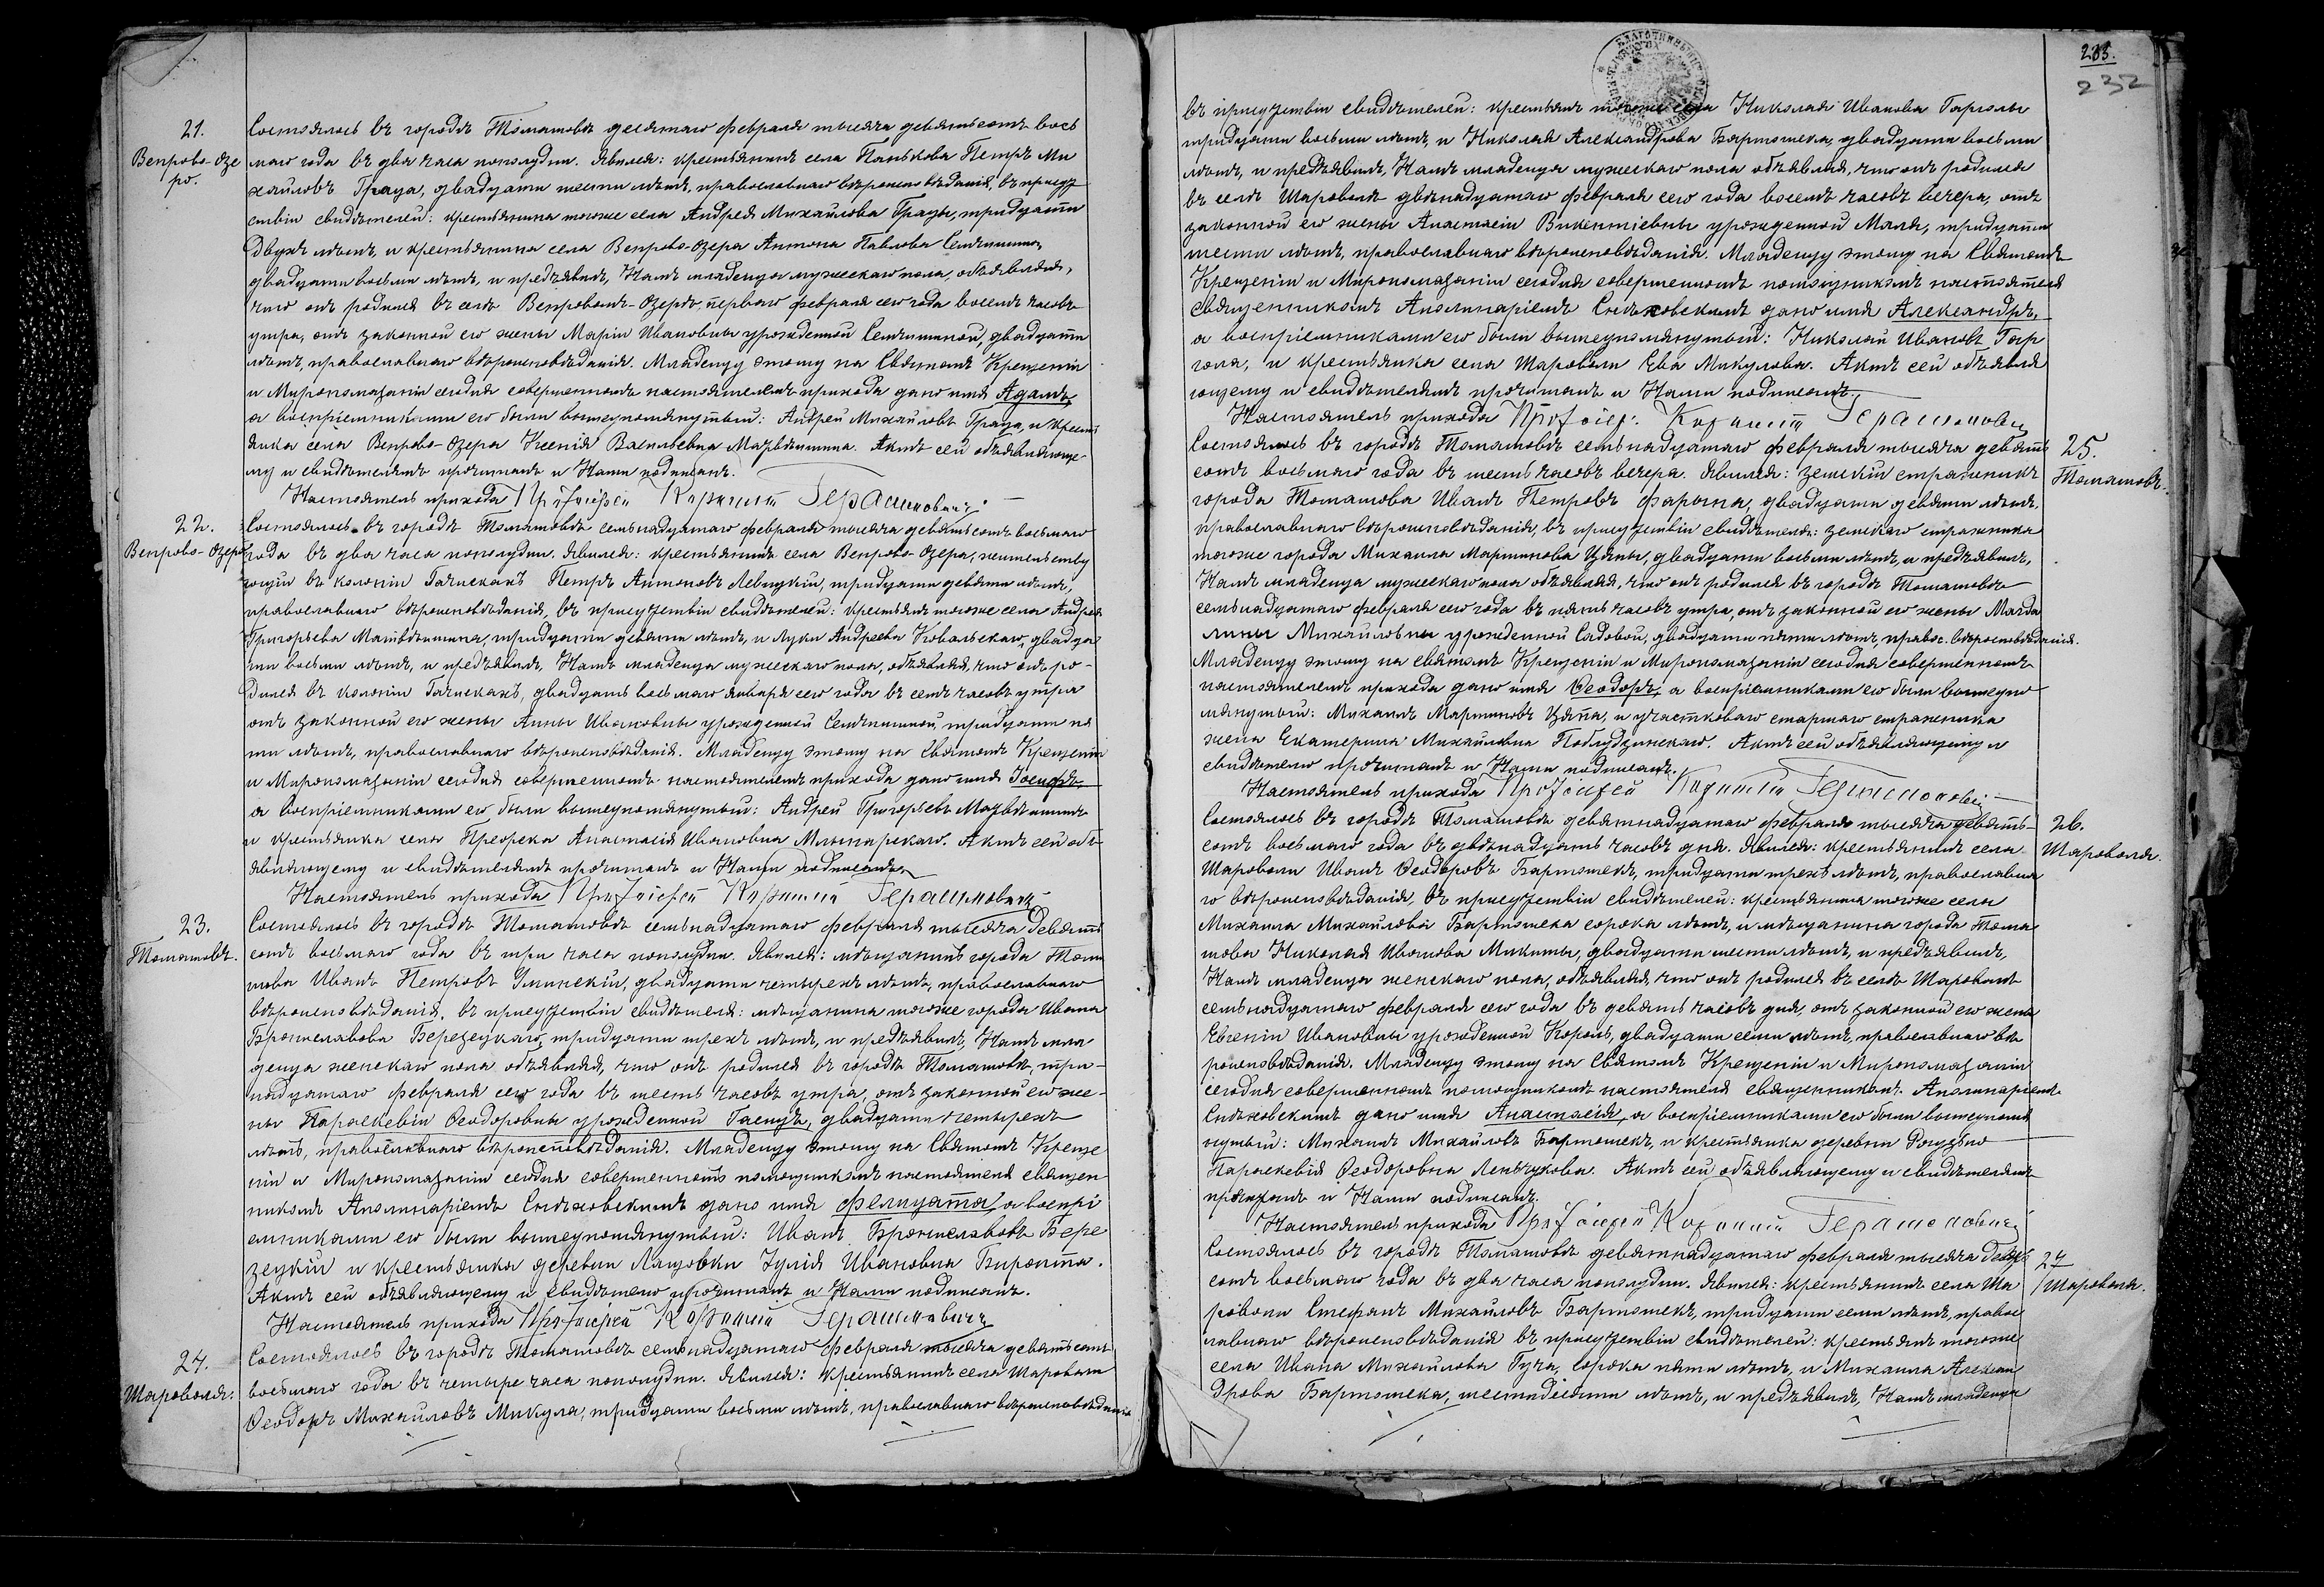 21.
Венрово-Озе
ро.
Состоялось въ городѣ Томашовѣ десятаго февраля тысяча девятьсотъ вось
маго года въ два часа пополудни. Явился: крестьянинъ села Панькова Петръ Ми
хайловъ Граца, двадцати шести лѣтъ, православнаго вѣроисповѣданія, въ присут
ствіи свидѣтелей: крестьянина тогоже села Андрея Михайлова Грацы, тридцати
двухъ лѣтъ, и крестьянина села Венрово-Озера Антона Павлова
двадцати восьми лѣтъ, и предъявилъ Намъ младенца мужескаго пола, объявляя,
что онъ родился въ селѣ Венровомъ-Озерѣ, перваго февраля сего года восемь часовъ
утра, отъ законной его жены Маріи Ивановны урожденной двадцати
лѣтъ, православнаго вѣроисповѣданія. Младенцу этому на Святомъ Крещеніи
и Миропомазаніи сегодня совершенномъ настоятелемъ прихода дано имя Адамъ,
а воспріемниками его были вышеупомянутый: Андрей Михайловъ Граца, и крест
янка села Венрово-Озера Ксенія Васильевна Матвѣишина. Актъ сей объявляюще-
му и свидѣтелямъ прочитанъ и Нами подписанъ.
Настоятель прихода Протоіерей Корнилій Герашиновичъ.
22.
Венрово-Озеро
Состоялось въ городѣ Томашовѣ семьнадцатаго февраля тысяча девятьсотъ восьмаго
года въ два часа пополудни. Явился: крестьянинъ села Венрово-Озера, жительству
ющій въ колоніи Петръ Антоновъ Левицкій, тридцати девяти лѣтъ,
православнаго вѣроисповѣданія, въ присутствіи свидѣтелей: крестьянъ тогоже села Андрея
Григорьева Матвѣишина, тридцати девяти лѣтъ, и Луки Андреева Ковальскаго, двадца
ти восьми лѣтъ, и предъявилъ Намъ младенца мужескаго пола, объявляя, что онъ ро-
дился въ колоніи двадцать восьмаго января сего года въ семь часовъ утра
отъ законной его жены Анны Ивановны урожденной тридцати пя
ти лѣтъ, православнаго вѣроисповѣданія. Младенцу этому на Святомъ Крещеніи
и Миропомазаніи сегодня совершенномъ настоятелемъ прихода дано имя Іосифъ,
а воспріемниками его были вышеупомянутый: Андрей Григорьевъ Матвѣишинъ
и крестьянка села Преорска Анастасія Ивановна Актъ сей объ-
являющему и свидѣтелямъ прочитанъ и Нами подписанъ.
Настоятель прихода Протоіерей Корнилій Герашиновичъ
23.
Томашовъ.
Состоялось въ городѣ Томашовѣ семьнадцатаго февраля тысяча девять
сотъ восьмаго года въ три часа пополудни. Явился: мѣщанинъ города Тома
шова Иванъ Петровъ двадцати четырехъ лѣтъ, православнаго
вѣроисповѣданія, въ присутствіи свидѣтеля: мѣщанина тогоже города Ивана
Брониславова Березецкаго, тридцати трехъ лѣтъ, и предъявилъ Намъ мла
денца женскаго пола, объявляя, что онъ родился въ городѣ Томашовѣ, три-
надцатаго февраля сего года въ шесть часовъ утра, отъ законной его же-
ны Параскевіи Ѳеодоровны урожденной Гасюхъ, двадцати четырехъ
лѣтъ, православнаго вѣроисповѣданія. Младенцу этому на Святомъ Креще
ніи и Миропомазаніи сегодня совершенномъ помощникомъ настоятеля священ
никомъ Аполинаріемъ Снѣжовскимъ дано имя Фелицата, а воспрі
емниками его были вышеупомянутый: Иванъ Брониславовъ Бере
зецкій и крестьянка деревни Лящовки Іулія Ивановна
Актъ сей объявляющему и свидѣтелю прочитанъ и Нами подписанъ.
Настоятель прихода Протоіерей Корнилій Герашиновичъ
24.
Шароволя.
Состоялось въ городѣ Томашовѣ семьнадцатаго февраля тысяча девятьсотъ
восьмаго года въ четыре часа пополудни. Явился: крестьянинъ села Шароволи
Ѳеодоръ Михайловъ Микула, тридцати восьми лѣтъ, православнаго вѣроисповѣданія
233.
232
въ присутствіи свидѣтелей: крестьянъ тогоже села Николая Иванова
тридцати восьми лѣтъ, и Николая Александрова Бартошека, двадцати восьми
лѣтъ, и предъявилъ Намъ младенца мужескаго пола объявляя, что онъ родился
въ селѣ Шароволѣ двѣнадцатаго февраля сего года восемь часовъ вечера, отъ
законной его жены Анастасіи Викентіевны урожденной Маля, тридцати
шести лѣтъ, православнаго вѣроисповѣданія. Младенцу этому на Святомъ
Крещеніи и Миропомазаніи сегодня совершенномъ помощникомъ настоятеля
священникомъ Аполинаріемъ Снѣжовскимъ дано имя Александръ,
а воспріемниками его были вышеупомянутый: Николай Ивановъ
и крестьянка села Шароволи Ева Микулова. Актъ сей объявля
ющему и свидѣтелямъ прочитанъ и Нами подписанъ.
Настоятель прихода Протоіер. Корнилій Герашиновичъ
25.
Томашовъ.
Состоялось въ городѣ Томашовѣ семьнадцатаго февраля тысяча девять
сотъ восьмаго года въ шесть часовъ вечера. Явился: земскій стражникъ
города Томашова Иванъ Петровъ Фарына, двадцати девяти лѣтъ,
православнаго вѣроисповѣданія, въ присутствіи свидѣтеля: земскаго стражника
тогоже города Михаила Мартинова Цяпы, двадцати восьми лѣтъ, и предъявилъ
Намъ младенца мужескаго пола объявляя, что онъ родился въ городѣ Томашовѣ
семьнадцатаго февраля сего года въ пять часовъ утра, отъ законной его жены Магда
лины Михайловны урожденной Садовой, двадцати пяти лѣтъ, правос. вѣроисповѣданія.
Младенцу этому на святомъ Крещеніи и Миропомазаніи сегодня совершенномъ
настоятелемъ прихода дано имя Ѳеодоръ, а воспріемниками его были вышеупо
мянутый: Михаилъ Мартиновъ Цяпа, и участковаго старшаго стражника
жена Екатерина Михайловна Актъ сей объявляющему и
свидѣтелю прочитанъ и Нами подписанъ.
Настоятель прихода Протоіерей Корнилій Герашиновичъ
26.
Шароволя.
Состоялось въ городѣ Томашовѣ девятнадцатаго февраля тысяча девять-
сотъ восьмаго года въ двѣнадцать часовъ дня. Явился: крестьянинъ села
Шароволи Иванъ Ѳеодоровъ Бартошекъ, тридцати трехъ лѣтъ, православна
го вѣроисповѣданія, въ присутствіи свидѣтелей: крестьянина тогоже села
Михаила Михайлова Бартошека сорока лѣтъ, и мѣщанина города Тома
шова Николая Иванова Микиты, двадцати шести лѣтъ, и предъявилъ
Намъ младенца женскаго пола, объявляя, что онъ родился въ селѣ Шароволѣ
семьнадцатаго февраля сего года въ девять часовъ дня, отъ законной его жены
Евгеніи Ивановны урожденной Король, двадцати семи лѣтъ, православнаго вѣ
роисповѣданія. Младенцу этому на Святомъ Крещеніи и Миропомазаніи
сегодня совершенномъ помощникомъ настоятеля священникомъ Аполинаріемъ
Снѣжовскимъ дано имя Анастасія, а воспріемниками его были вышеупомя
нутый: Михаилъ Михайловъ Бартошекъ, и крестьянка деревни Рогузно
Параскевія Ѳеодоровна Леньчукова. Актъ сей объявляющему и свидѣтелямъ
прочитанъ и Нами подписанъ.
Настоятель прихода Протоіерей Корнилій Герашиновичъ
27
Шароволя.
Состоялось въ городѣ Томашовѣ девятнадцатаго февраля тысяча девять
сотъ восьмаго года въ два часа пополудни. Явился: крестьянинъ села Ша
роволи Стефанъ Михайловъ Бартошекъ, тридцати семи лѣтъ, правос
лавнаго вѣроисповѣданія въ присутствіи свидѣтелей: крестьянъ тогоже
села Ивана Михайлова Гуча, сорока пяти лѣтъ, и Михаила Алексан
дрова Бартошека, шестидесяти лѣтъ, и предъявилъ Намъ младенца